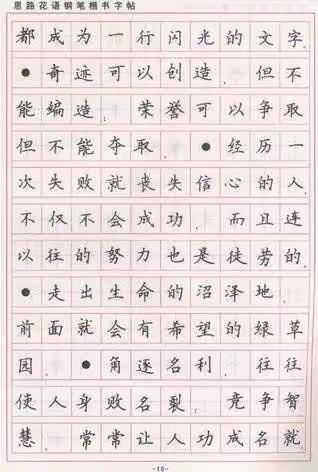 思路花语钢笔楷书字帖
都成为一行闪光的文字
●奇迹可以创造，但不
能编造；荣誉可以争取
但不能夺取。●经历一
次失败就丧失信心的人，
不仅不会成功，而且连
以往的努力也是徒劳的。
●走出生命的沼泽地，
前面就会有希望的绿草
园。●角逐名利，往往
使人身败名裂；竞争智
慧，常常让人功成名就
-16-